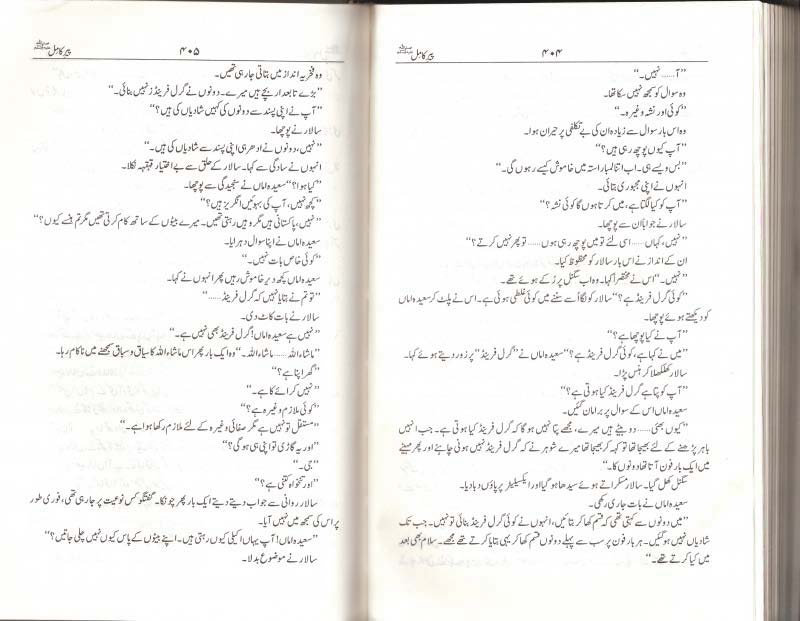 ۴۰۴ پیر کامل ﷺ
”آ...... نہیں۔“
وہ سوال کو سمجھ نہیں سکا تھا۔
”کوئی اور نشہ وغیرہ۔“
وہ اس بار سوال سے زیادہ ان کی بے تکلفی پر حیران ہوا۔
”آپ کیوں پوچھ رہی ہیں؟“
”بس ویسے ہی۔ اب اتنا لمبا راستہ میں خاموش کیسے رہوں گی۔“
انہوں نے اپنی مجبوری بتائی۔
”آپ کو کیا لگتا ہے، میں کرتا ہوں گا کوئی نشہ؟“
سالار نے جواباً ان سے پوچھا۔
”نہیں، کہاں...... اسی لئے تو میں پوچھ رہی ہوں...... تو پھر نہیں کرتے؟“
ان کے انداز نے اس بار سالار کو محظوظ کیا۔
”نہیں۔“ اس نے مختصراً کہا۔ وہ اب سگنل پر رکے ہوئے تھے۔
”کوئی گرل فرینڈ ہے؟“ سالار کو لگا اسے سننے میں کوئی غلطی ہوئی ہے۔ اس نے پلٹ کر سعیدہ اماں
کو دیکھتے ہوئے پوچھا۔
”آپ نے کیا پوچھا ہے؟“
”میں نے کہا ہے، کوئی گرل فرینڈ ہے؟“ سعیدہ اماں نے ”گرل فرینڈ“ پر زور دیتے ہوئے کہا۔
سالار کھلکھلا کر ہنس پڑا۔
”آپ کو پتا ہے گرل فرینڈ کیا ہوتی ہے؟“
سعیدہ اماں اس کے سوال پر برا مان گئیں۔
”کیوں بھئی...... دو بیٹے ہیں میرے، مجھے پتا نہیں ہو گا کہ گرل فرینڈ کیا ہوتی ہے۔ جب انہیں
باہر پڑھنے کے لئے بھیجا تھا تو کہہ کر بھیجا تھا میرے شوہر نے کہ گرل فرینڈ نہیں ہونی چاہئے اور پھر مہینے
میں ایک بار فون آتا تھا دونوں کا۔“
سگنل کھل گیا۔ سالار مسکراتے ہوئے سیدھا ہو گیا اور ایکسیلیٹر پر پاؤں دبا دیا۔
سعیدہ اماں نے بات جاری رکھی۔
”میں دونوں سے کہتی تھی کہ قسم کھا کر بتائیں، انہوں نے کوئی گرل فرینڈ بنائی تو نہیں۔ جب تک
شادیاں نہیں ہو گئیں۔ ہر بار فون پر سب سے پہلے دونوں قسم کھا کر یہی بتایا کرتے تھے مجھے۔ سلام بھی بعد
میں کیا کرتے تھے۔“
۴۰۵ پیر کامل ﷺ
وہ فخریہ انداز میں بتاتی جا رہی تھیں۔
”بڑے تابعدار بچے ہیں میرے۔ دونوں نے گرل فرینڈز نہیں بنائی۔“
”آپ نے اپنی پسند سے دونوں کی کہیں شادیاں کی ہیں؟“
سالار نے پوچھا۔
”نہیں، دونوں نے ادھر ہی اپنی پسند سے شادیاں کی ہیں۔“
انہوں نے سادگی سے کہا۔ سالار کے حلق سے بے اختیار قہقہہ نکلا۔
”کیا ہوا؟“ سعیدہ اماں نے سنجیدگی سے پوچھا۔
”کچھ نہیں، آپ کی بہوئیں انگریز ہیں؟“
”نہیں، پاکستانی ہیں مگر وہیں رہتی تھیں۔ میرے بیٹوں کے ساتھ کام کرتی تھیں مگر تم ہنسے کیوں؟“
سعیدہ اماں نے اپنا سوال دہرایا۔
”کوئی خاص بات نہیں۔“
سعیدہ اماں کچھ دیر خاموش رہیں پھر انہوں نے کہا۔
”تو تم نے بتایا نہیں کہ گرل فرینڈ......“
سالار نے بات کاٹ دی۔
”نہیں ہے سعیدہ اماں! گرل فرینڈ بھی نہیں ہے۔“
”ماشاءاللہ...... ماشاءاللہ۔“ وہ ایک بار پھر اس ماشاءاللہ کا سیاق و سباق سمجھنے میں ناکام رہا۔
”گھر اپنا ہے؟“
”نہیں کرائے کا ہے۔“
”کوئی ملازم وغیرہ ہے؟“
”مستقل تو نہیں ہے مگر صفائی وغیرہ کے لئے ملازم رکھا ہوا ہے۔“
”اور یہ گاڑی تو اپنی ہی ہو گی؟“
”جی۔“
”اور تنخواہ کتنی ہے؟“
سالار روانی سے جواب دیتے دیتے ایک بار پھر چونکا۔ گفتگو کس نوعیت پر جا رہی تھی، فوری طور
پر اس کی سمجھ میں نہیں آیا۔
”سعیدہ اماں! آپ یہاں اکیلی کیوں رہتی ہیں۔ اپنے بیٹوں کے پاس کیوں نہیں چلی جاتیں؟“
سالار نے موضوع بدلا۔